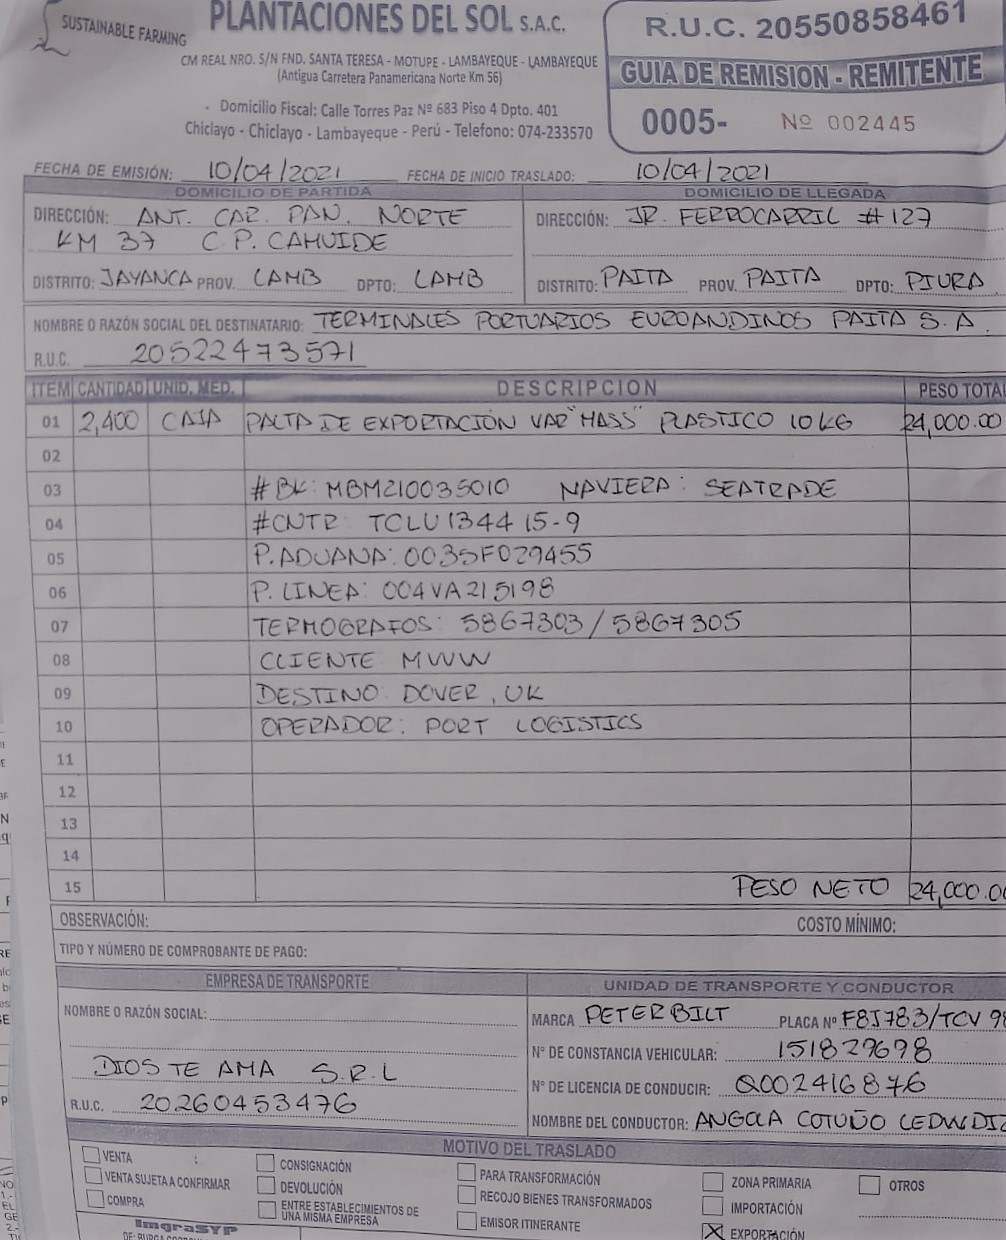 SUSTAINABLE FARMING
PLANTACIONES DEL SOL S.A.C.
CM REAL NRO. S/N FND. SANTA TERESA - MOTUPE - LAMBAYEQUE - LAMBAYEQUE
(Antigua Carretera Panamericana Norte Km 56)
Domicilio Fiscal: Calle Torres Paz Nº 683 Piso 4 Dpto. 401
Chiclayo - Chiclayo - Lambayeque - Perú - Telefono: 074-233570
R.U.C. 20550858461
GUIA DE REMISION - REMITENTE
0005- Nº 002445
FECHA DE EMISIÓN: 10/04/2021 FECHA DE INICIO TRASLADO: 10/04/2021
DOMICILIO DE PARTIDA
DIRECCIÓN: ANT. CAR. PAN. NORTE
KM 37 C.P. CAHUIDE
DISTRITO: JAYANCA PROV. LAMB DPTO: LAMB
DOMICILIO DE LLEGADA
DIRECCIÓN: JR. FERROCARRIL #127
DISTRITO: PAITA PROV. PAITA DPTO: PIURA
NOMBRE O RAZÓN SOCIAL DEL DESTINATARIO: TERMINALES PORTUARIOS EUROANDINOS PAITA S.A.
R.U.C. 20522473571
ITEM CANTIDAD UNID. MED. DESCRIPCION PESO TOTAL
01 2,400 CAJA PALTA DE EXPORTACIÓN VAR "HASS" PLASTICO 10 KG 24,000.00
02
03 #BK: MBM210035010 NAVIERA: SEATRADE
04 #CNTR: TCLU 134415-9
05 P. ADUANA: 0035F029455
06 P. LINEA: 004VA215198
07 TERMOGRAFOS: 5867303/5867305
08 CLIENTE MWW
09 DESTINO: DOVER, UK
10 OPERADOR: PORT LOGISTICS
11
12
13
14
15 PESO NETO 24,000.00
OBSERVACIÓN: COSTO MÍNIMO:
TIPO Y NÚMERO DE COMPROBANTE DE PAGO:
EMPRESA DE TRANSPORTE
NOMBRE O RAZÓN SOCIAL:
DIOS TE AMA S.R.L
R.U.C. 20260453476
UNIDAD DE TRANSPORTE Y CONDUCTOR
MARCA PETERBILT PLACA Nº F8J783/TCV 98
Nº DE CONSTANCIA VEHICULAR: 151829698
Nº DE LICENCIA DE CONDUCIR: Q002416876
NOMBRE DEL CONDUCTOR: ANGOLA COTUÑO
MOTIVO DEL TRASLADO
VENTA
VENTA SUJETA A CONFIRMAR
COMPRA
CONSIGNACIÓN
DEVOLUCIÓN
ENTRE ESTABLECIMIENTOS DE
UNA MISMA EMPRESA
PARA TRANSFORMACIÓN
RECOJO BIENES TRANSFORMADOS
EMISOR ITINERANTE
ZONA PRIMARIA
IMPORTACIÓN
X EXPORTACIÓN
OTROS
ImgraSYP